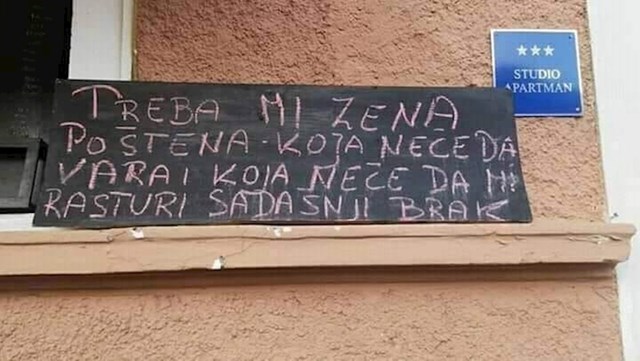 TREBA MI ZENA
POŠTENA-KOJA NEĆE DA
VARA I KOJA NEĆE DA MI
RASTURI SADAŠNJI BRAK
★★★
STUDIO
APARTMAN